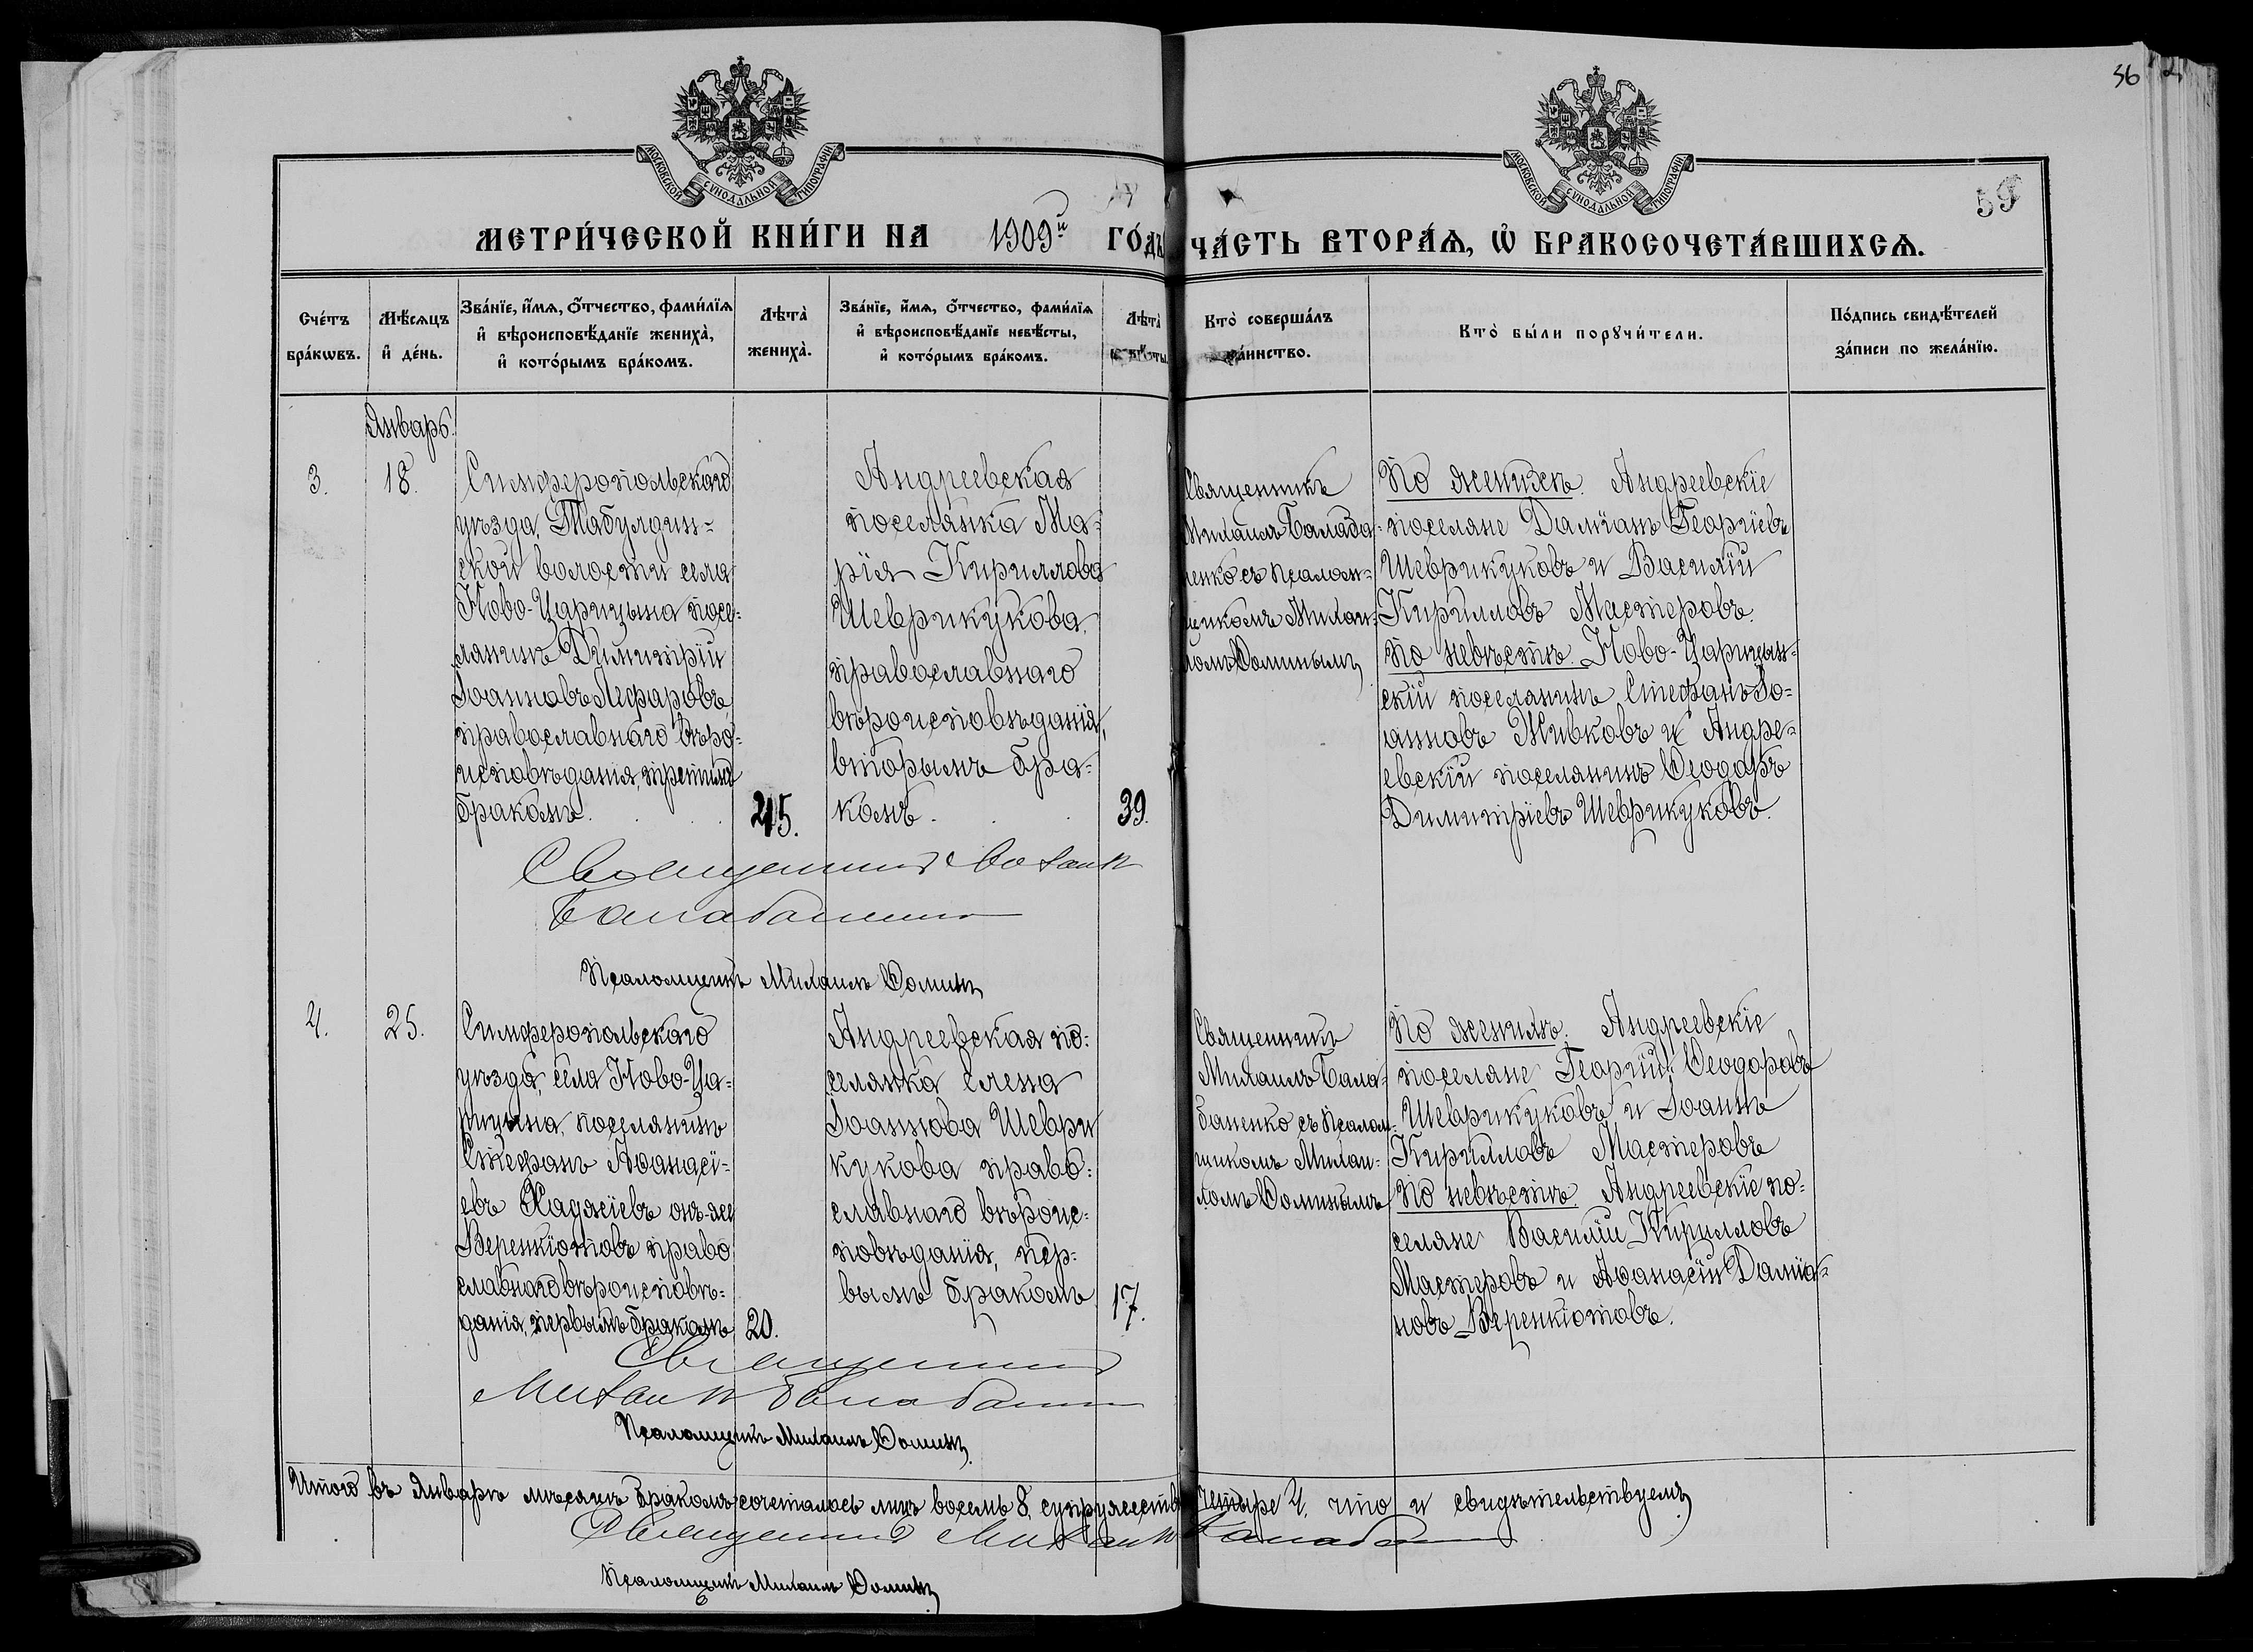 36
59
МОСКОВСКОЙ СѴНОДАЛЬНОЙ ТИПОГРАФІИ
МОСКОВСКОЙ СѴНОДАЛЬНОЙ ТИПОГРАФІИ
МЕТРИ́ЧЕСКОЙ КНИ́ГИ НА 1909й ГО́ДЪ
ЧА́СТЬ ВТОРА́Ѧ, Ѡ҆ БРАКОСОЧЕТА́ВШИХСѦ.
Сче́тъ
бра́кѡвъ.
Мѣ́сяцъ
и҆ де́нь.
Зва́нїе, и҆́мѧ, ѻ҆́тчество, фами́лїѧ
и҆ вѣроисповѣ́данїе жениха̀,
и҆ кото́рымъ бра́комъ.
Лѣта̀
жениха̀.
Зва́нїе, и҆́мѧ, ѻ҆́тчество, фами́лїѧ
и҆ вѣроисповѣ́данїе невѣ́сты,
и҆ кото́рымъ бра́комъ.
Лѣта̀
невѣ́сты.
Кто̀ соверша́лъ
та́инство.
Кто̀ бы́ли порꙋчи́тели.
По́дпись свидѣ́телей
за́писи по жела́нїю.
Январь.
3.
18.
Симферопольскаго
уѣзда, Табулдин=
ской волости села
Ново-Царицына посе=
лянинъ Димитрій
Іоанновъ Лефаровъ,
православнаго вѣро=
исповѣданія, третьимъ
бракомъ.
45.
Андреевская
поселянка Ма=
рія Кириллова
Шеврикукова,
православнаго
вѣроисповѣданія,
вторымъ бра=
комъ.
39.
Священникъ
Михаилъ Балаба=
ненко съ псалом=
щикомъ Михаи=
ломъ Ѳоминымъ
По женихѣ. Андреевскіе
поселяне Даміанъ Георгіевъ
Шеврикуковъ и Василій
Кирилловъ Мастеровъ.
по невѣстѣ. Ново-Царицын=
скій поселянинъ Стефанъ Іо=
анновъ Живковъ и Андре=
евскій поселянинъ Ѳеодоръ
Димитріевъ Шеврикуковъ.
Священникъ Михаилъ
Балабаненко
Псаломщикъ Михаилъ Ѳоминъ
4.
25.
Симферопольскаго
уѣзда, села Ново-Ца=
рицына, поселянинъ
Стефанъ Аѳанасі=
евъ Хаджіевъ онъ-же
Веренкіотовъ право
славнаго вѣроисповѣ=
данія, первымъ бракомъ
20.
Андреевская по=
селянка Елена
Іоаннова Шеври
кукова право=
славнаго вѣроис=
повѣданія, пер=
вымъ бракомъ
17.
Священникъ
Михаилъ Бала=
баненко съ псалом=
щикомъ Михаи=
ломъ Ѳоминымъ
По женихѣ. Андреевскіе
поселяне Георгій Ѳеодоровъ
Шеврикуковъ и Іоаннъ
Кирилловъ Мастеровъ
По невѣстѣ. Андреевскіе по=
селяне Василій Кирилловъ
Мастеровъ и Аѳанасій Даміа=
новъ Веренкіотовъ.
Священникъ
Михаилъ Балабаненко
Псаломщикъ Михаилъ Ѳоминъ
Итого въ Январѣ мѣсяцѣ бракомъ сочеталось лицъ восемь 8, супружествъ четыре 4, что и свидѣтельствуемъ
Священникъ Михаилъ Балабаненко
Псаломщикъ Михаилъ Ѳоминъ